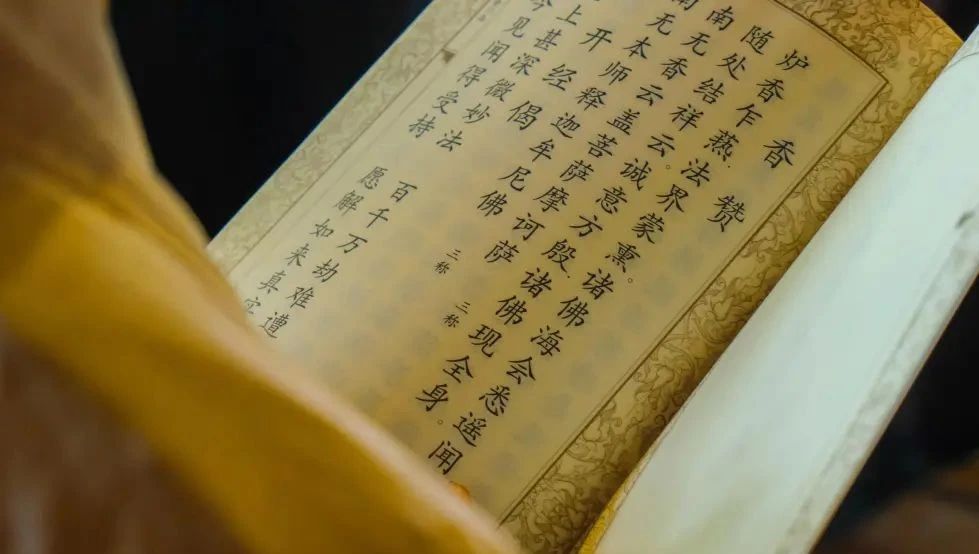 香赞
炉香乍爇法界蒙熏。诸佛海会悉遥闻
随处结祥云。诚意方殷诸佛现全身。
南无香云盖菩萨摩诃萨 三称
南无本师释迦牟尼佛 三称
开经偈
上甚深微妙法 百千万劫难遭
今见闻得受持 愿解如来真实